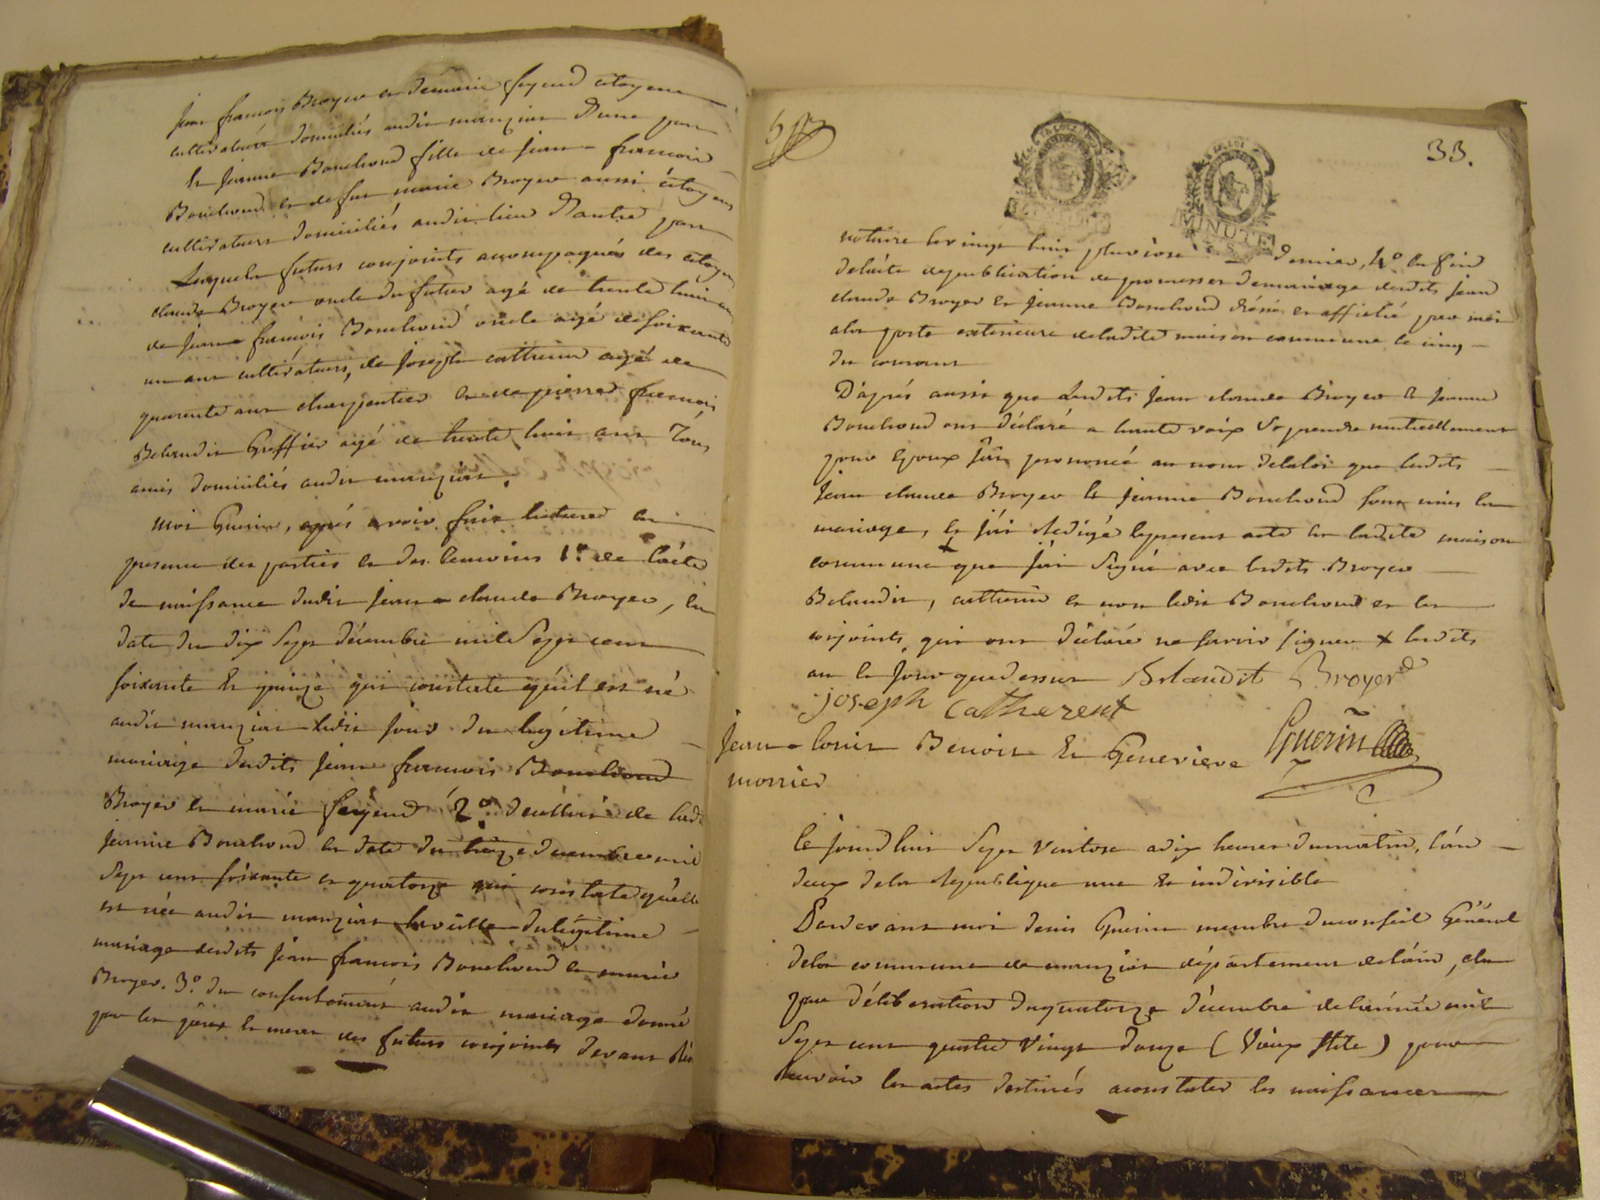 jean françois Broyer et demarie feyend citoyens
cultivateurs domiciliés audit manziat d'une part
et jeanne Bouchoud fille de jean françois
Bouchoud et de feue marie Broyer aussi citoyens
cultivateurs domiciliés audit lieu d'autre part
Lesquels futurs conjoints accompagnés des citoyens
claude Broyer oncle du futur agé de trente huit ans
de jean françois Bouchoud oncle agé de soixante
un ans cultivateurs, de joseph cattherin agé de
quarante ans charpentier et de pierre françois
Belaudit Greffier agé de trente huit ans Tous
amis domiciliés audit manziat.
moi Guerin, après avoir fait lecture en
presence des parties et des temoins 1.º de l'acte
de naissance dudit jean claude Broyer, en
date du dix sept décembre mil sept cent
soixante et quinze qui constate qu'il est né
audit manziat ledit jour du légitime
mariage desdits jean françois Bouchoud
Broyer et marie feyend 2.º de celui de lad.
jeanne Bouchoud en date du treize décembre mil
sept cent soixante et quatorze qui constate qu'elle
est née audit manziat la veille du légitime
mariage desdits jean françois Bouchoud et marie
Broyer. 3.º du consentement audit mariage donné
par les pères et meres des futurs conjoints devant
33.
MINUTE
notaire le vingt huit pluviose dernier, 4.º enfin
de l'acte de publication de promesses de mariage desdits jean
claude Broyer et jeanne Bouchoud et affiché par moi
a la porte exterieure de ladite maison commune le cinq
du courant
D'après aussi que Lesdits jean claude Broyer et jeanne
Bouchoud ont déclaré a haute voix se prendre mutuellement
pour epoux j'ai prononcé au nom de la loi que lesdits
jean claude Broyer et jeanne Bouchoud sont unis en
mariage, et j'ai rédigé le present acte en ladite maison
commune que j'ai signé avec lesdits Broyer
Belaudit, cattherin et non ledit Bouchoud et les
conjoints qui ont déclaré ne savoir signer lesdits
an et jour que dessus Belaudit Broyer
joseph Catherent
Guerin
jean louis Benoit et Genevieve
monier
Cejourd'hui sept ventose a dix heures du matin, l'an
deux de la République une et indivisible
Pardevant moi denis Guerin membre du conseil Général
de la commune de manziat département de l'ain, élu
par déliberation du quatorze décembre de l'année mil
sept cent quatre vingt douze (Vieux stile) pour
recevoir les actes destinés a constater les naissances